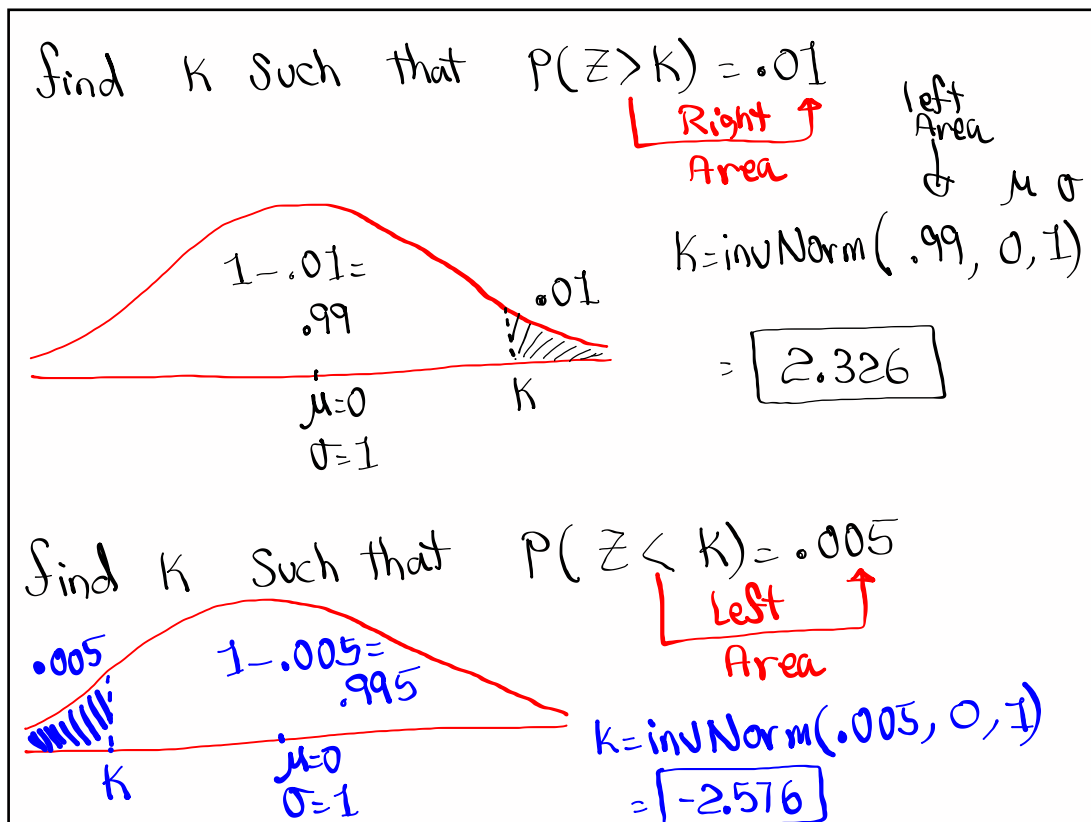 find K such that P(Z>K) = .01
Right
Area
left
Area
μ σ
K=invNorm( .99, 0,1)
1-.01=
.99
.01
= 2.326
μ=0
K
σ=1
find K such that P( Z< K)= .005
Left
Area
.005
1-.005=
.995
K=invNorm(.005, 0,1)
K
μ=0
σ=1
= -2.576